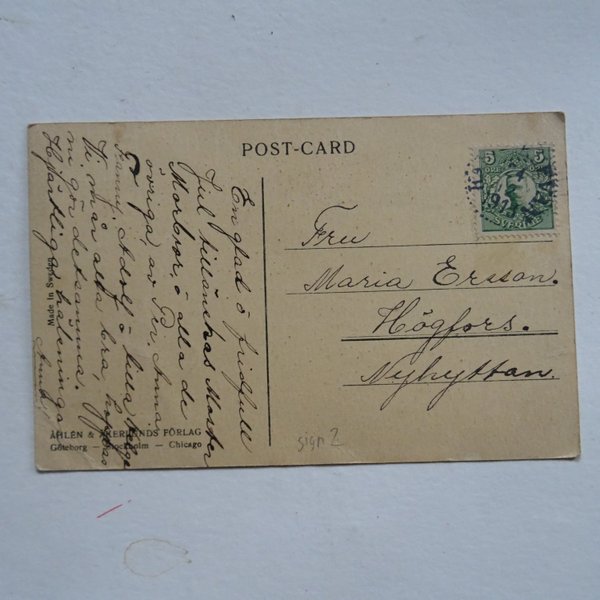 POST-CARD
En glad o fridfull
Jul tillönskas Moster
Morbror, o alla de
övriga, av Per, Anna,
Fanny, Adolf o lilla
Vi må alla bra, hoppas
ni gör detsamma.
Hjärtliga hälsningar
Fru
Maria Ersson.
Högfors.
Nyhyttan.
5 5
ÖRE
SVERIGE
Made in
ÅHLÉN & ÅKERLUNDS FÖRLAG
Göteborg — Stockholm — Chicago
sign 2